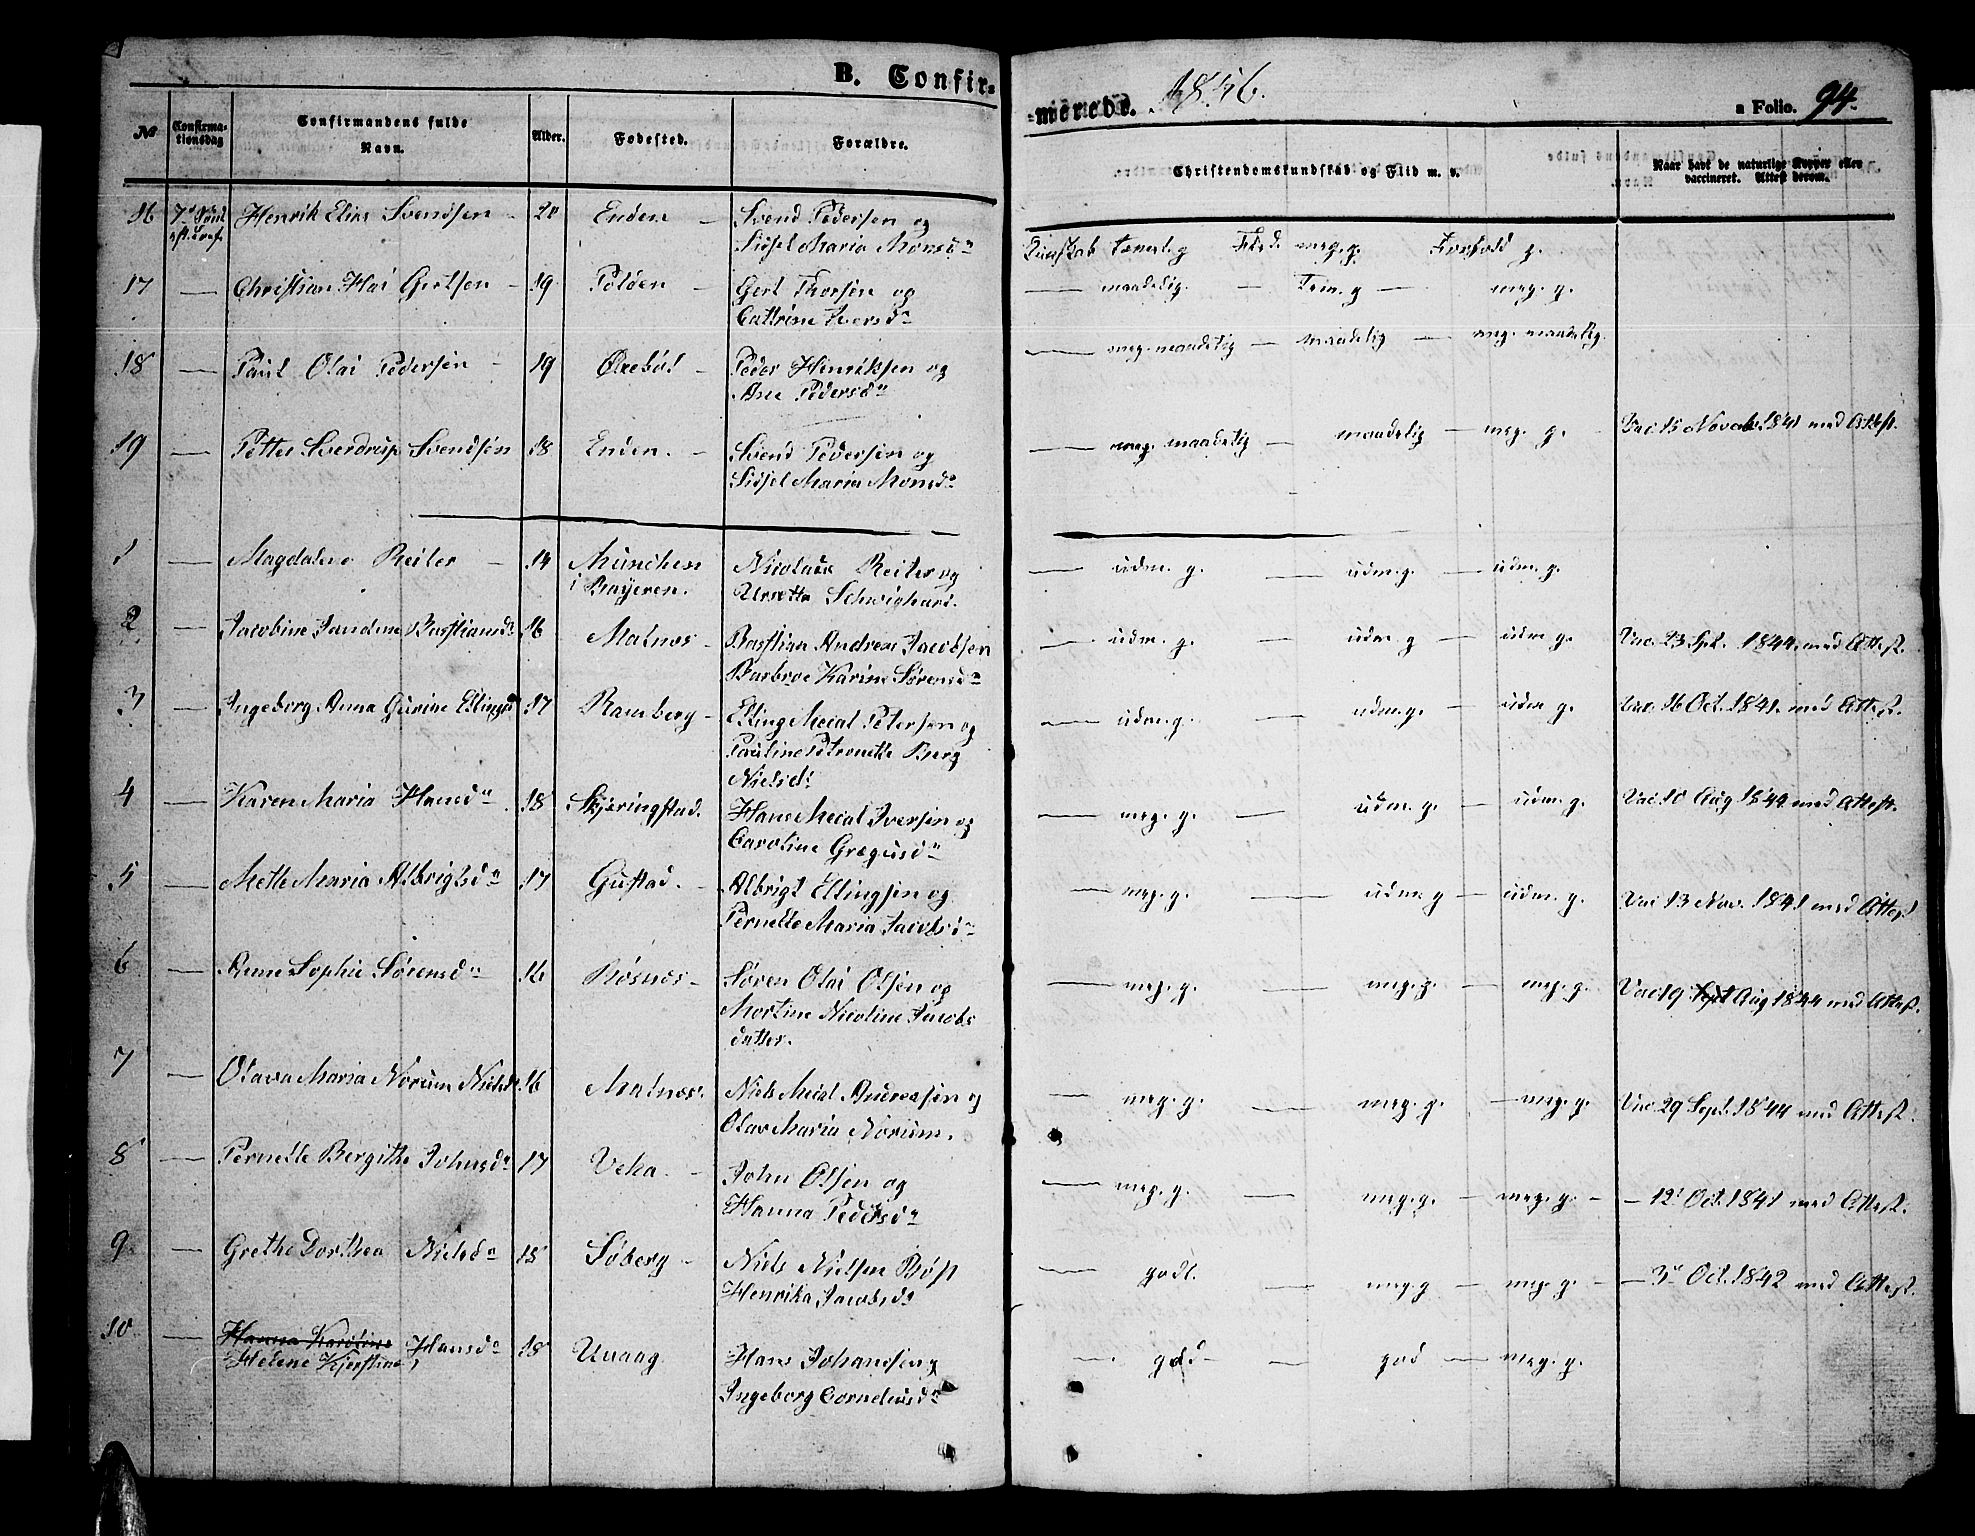 B. Confir=
=merede. 1856.
a Folio. 94.
No
Confirma-
tionsdag
Confirmandens fulde
Navn.
Alder.
Fødested.
Forældre.
Christendomskundskab og Flid m. v.
Naar havt de naturlige Kopper eller
vaccineret. Attest derom.
16 Henrik Elias Svendsen - 20 Enden - Svend Pedersen og
Sidsel Maria Monsdr
Kundskab temelig Flid meg. g. Forhold g.
17 — Christian Hai Gertsen - 19 Polden - Gert Thorsen og
Cathrine Iversdr
— maadelig. — Tem. g — meg. g.
18 — Paul Olai Pedersen - 19 Øxebøl - Peder Henriksen og
Ane Pedersdr
— meg. maadelig — maadelig — meg. maadelig.
19 — Petter Sverdrup Svendsen 18 Enden. - Svend Pedersen og
Sidsel Maria Monsdr
— meg. maadelig — maadelig — meg. g. - Vac 15 Novemb. 1841 med Attest.
1 — Magdalene Reiter - 14 München
i Bayeren.
Nicolaus Reiter og
Ursette Schwighard.
— udm. g. — udm. g. — udm. g.
2 — Jacobine Jandine Bastiansdr 16 Malnes - Bastian Andreas Jacobsen
Barbroe Karine Sørensdr
— udm. g. udm. g — udm. g. Vac. 23 Spt. 1844 med Attest.
3 — Ingeborg Anna Gurine Ellingsd 17 Ramberg - Elling Meial Petersen og
Pauline Petronelle Berg
Nielsdr
— udm. g. — udm. g. — udm g. Vac. 16 Oct. 1841. med Attest.
4 — Karen Maria Hansdr. 18 Skjeringstad. Hans Meial Iversen og
Caroline Gregusdr
— meg. g. — udm. g. — udm. g. Vac 10 Aug 1844 med Attest.
5 — Mette Maria Albrigtsdr 17 Gustad. - Albrigt Ellingsen og
Pernelle Maria Jacobsdr
— meg. g. — udm. g — udm. g. Vac 13 Nov. 1841 med Attest
6 — Anne Sophie Sørensdr 16 Røsnes - Søren Olai Olsen og
Mortine Nicoline Jacobs
datter.
— meg. g. — meg. g. — meg. g. Vac 19 Sept Aug 1844 med Attest.
7 — Olava Maria Norum Nielsd 16 Malnes. Niels Meial Andreasen og
Olav Maria Norum.
— meg. g. — meg. g. — meg. g. Vac. 29 Sept. 1844 med Attest.
8 — Pernelle Bergithe Johnsdr 17 Veha. - John Olsen og
Hanna Pedersdr
— meg. g. — meg. g. — meg. g. - — 12t Oct. 1841 med Attest.
9 — Grethe Dorthea Nielsdr 15 Søberg - Niels Nielsen Bøst
Henrika Jacobsdr
— godt. — meg. g — meg. g. — 3t Oct. 1842 med Attest.
10 — Hanna Karoline Hansdr 18 Uvaag Hans Johansen g
Helene Kjerstine,
Ingeborg Corneliusdr
— god — god — meg. g.